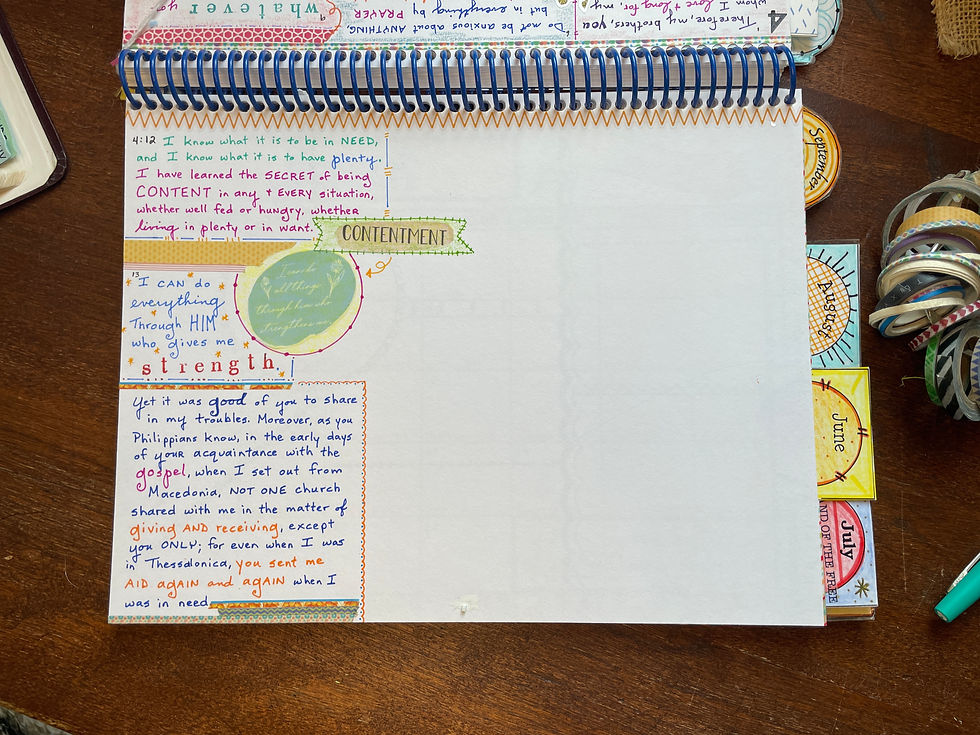 whatever
Do not be anxious about ANYTHING,
but in everything by PRAYER
4 "Therefore, my brothers, you
whom I love & long for, my
4:12 I know what it is to be in NEED,
and I know what it is to have plenty.
I have learned the SECRET of being
CONTENT in any + EVERY situation,
whether well fed or hungry, whether
living in plenty or in want.
CONTENTMENT
I can do
all things
through him who
strengthens me
13 I CAN do
everything
Through HIM
who gives me
strength.
Yet it was good of you to share
in my troubles. Moreover, as you
Philippians know, in the early days
of your acquaintance with the
gospel, when I set out from
Macedonia, NOT ONE church
shared with me in the matter of
giving AND receiving, except
you ONLY; for even when I was
in Thessalonica, you sent me
AID agAIN and agAIN when I
was in need
September
August
June
July
AND OF THE FREE